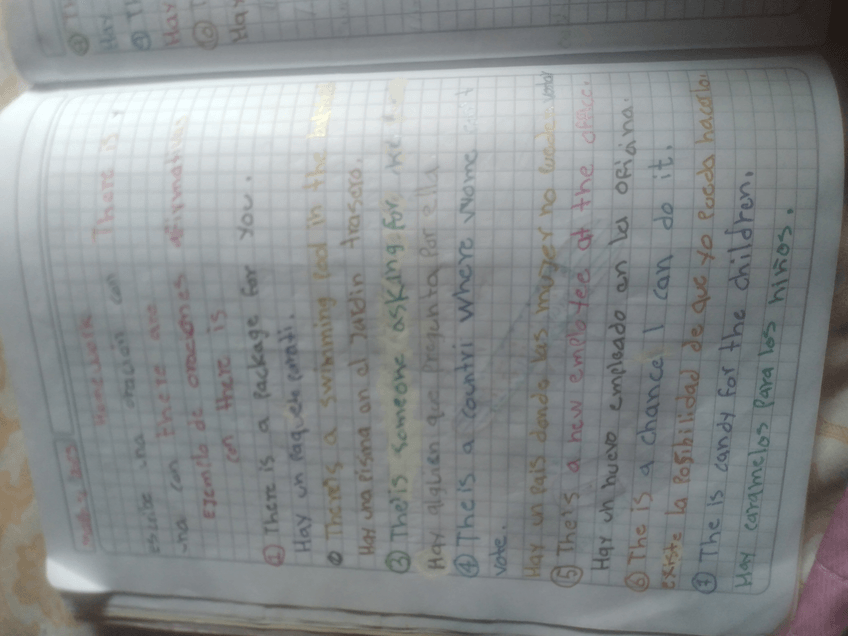 Homework
escribe una oración con There is y
una con there are
Ejemplo de oraciones afirmativas
con there is
① There is a package for you.
Hay un paquete para ti.
② There's a swimming pool in the
Hay una pisina en el Jardin trasero.
③ The is someone asking for
Hay alguien que pregunta por ella
④ The is a countri where wome
vote.
Hay un País donde las mujer no pueden votar
⑤ The is a new employee at the office.
Hay un nuevo empleado en la oficina.
⑥ The is a chance I can do it.
existe la Posibilidad de que yo Pueda hacerlo.
⑦ The is candy for the children.
Hay caramelos para los niños.
Hay
Hay
Hay